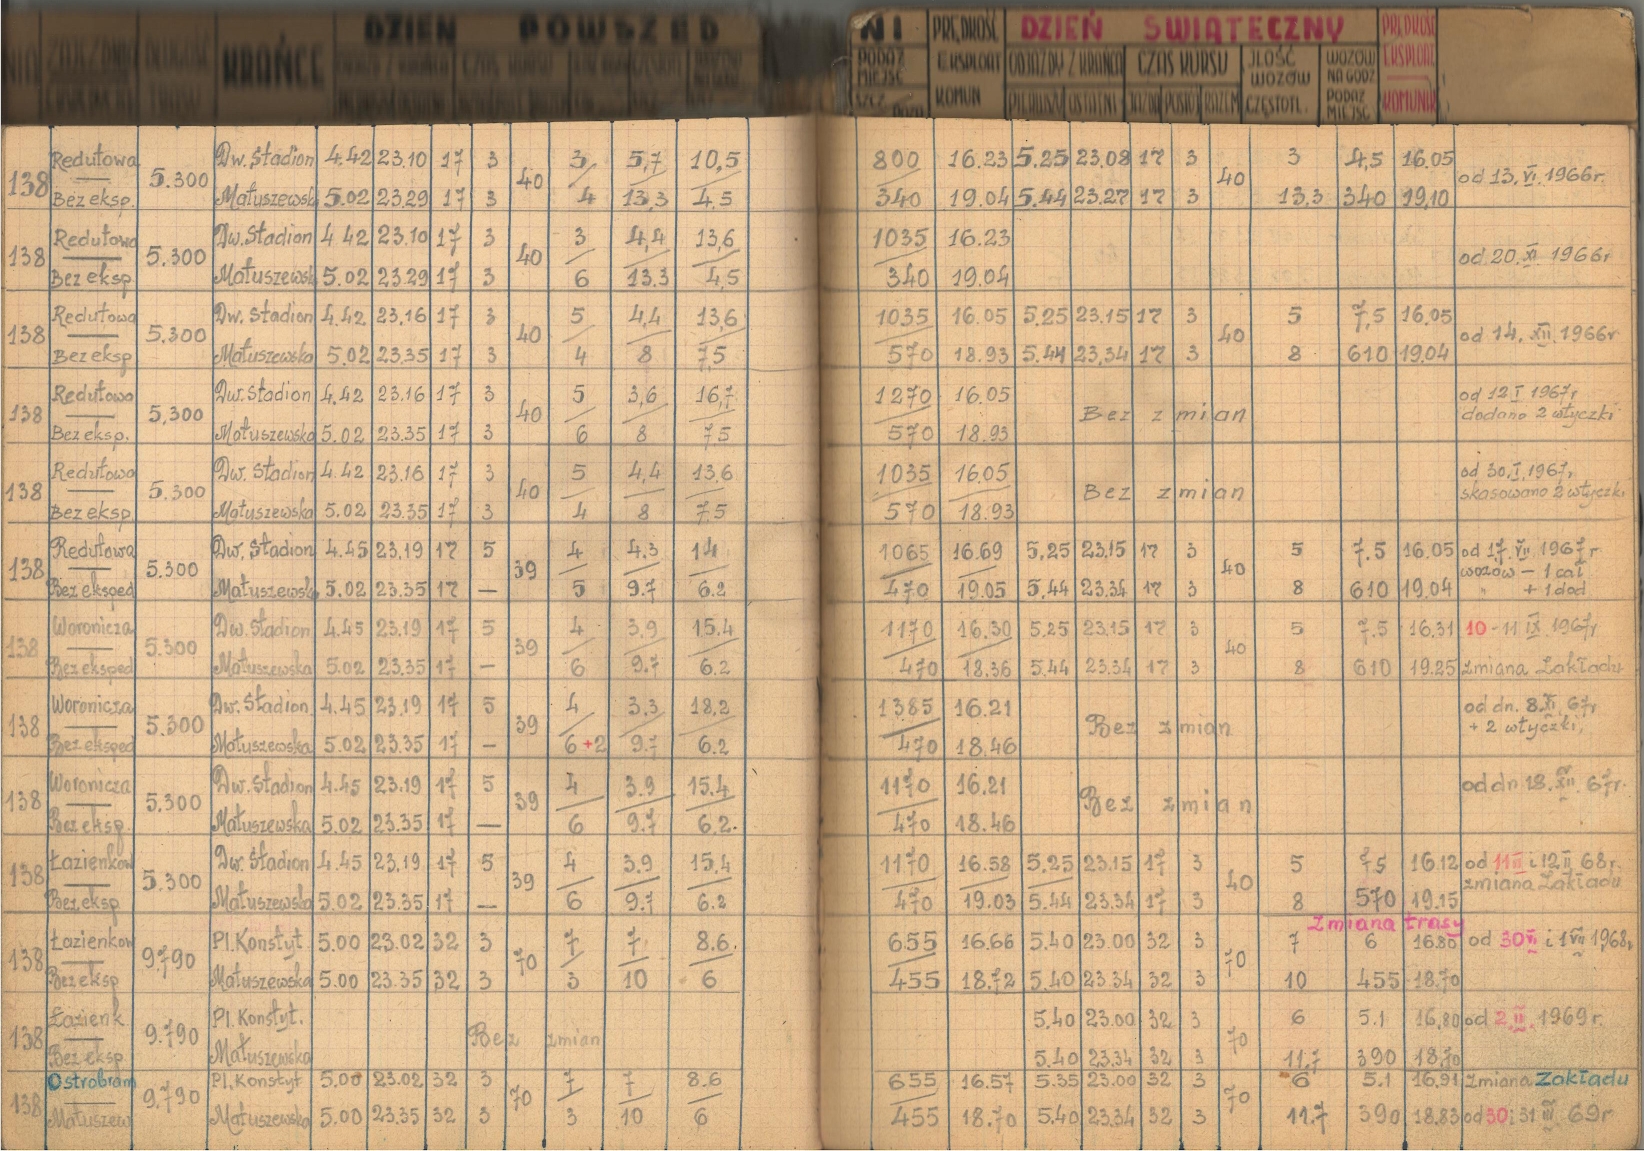 DZIEŃ POWSZED NI PRĘDKOŚĆ DZIEŃ ŚWIĄTECZNY PRĘDKOŚĆ
ZAJEZDNIA DŁUGOŚĆ KRAŃCE CZAS KURSU PODAŻ MIEJSC EKSPLOAT ODJAZDY Z KRAŃCA CZAS KURSU ILOŚĆ WOZÓW WOZÓW NA GODZ EKSPLOAT
KOMUN PIERWSZY OSTATNI JAZDA POSTÓJ RAZEM CZĘSTOTL. PODAŻ MIEJSC KOMUNIK
Redutowa Dw. Stadion 4.42 23.10 17 3 3 5,7 10,5 800 16.23 5.25 23.08 17 3 3 4,5 16.05
138 5.300 40 40 od 13.VI.1966r.
Bez eksp. Matuszewsk 5.02 23.29 17 3 4 13,3 4,5 340 19.04 5.44 23.27 17 3 13,3 340 19,10
Redutowa Dw. Stadion 4.42 23.10 17 3 3 4,4 13,6 1035 16.23
138 5.300 40 od 20.XI.1966r
Bez eksp Matuszewsk 5.02 23.29 17 3 6 13.3 4,5 340 19.04
Redutowa Dw. Stadion 4.42 23,16 17 3 5 4,4 13,6 1035 16.05 5.25 23.15 17 3 5 7,5 16.05
138 5.300 40 40 od 14.XII.1966r
Bez eksp Matuszewska 5.02 23.35 17 3 4 8 7,5 570 18.93 5.44 23,34 17 3 8 610 19.04
Redutowa Dw. Stadion 4.42 23.16 17 3 5 3,6 16,7 1270 16.05 od 12 I 1967r
138 5,300 40 Bez zmian dodano 2 wtyczki
Bez eksp. Matuszewska 5.02 23.35 17 3 6 8 7,5 570 18.93
Redutowa Dw. Stadion 4.42 23.16 17 3 5 4,4 13,6 1035 16.05 od 30.I.1967,
138 5.300 40 Bez zmian skasowano 2 wtyczki
Bez eksp Matuszewska 5.02 23.35 17 3 4 8 7,5 570 18.93
Redutowa Dw. Stadion 4.45 23,19 17 5 4 4.3 14 1065 16.69 5,25 23,15 17 3 5 7.5 16.05 od 17.VII.1967r
138 5.300 39 40 wozów - 1 cał
Bez eksped Matuszewsk 5.02 23.35 17 — 5 9.7 6.2 470 19.05 5,44 23.34 17 3 8 610 19,04 " + 1 dod
Woronicza Dw. Stadion 4.45 23.19 17 5 4 3,9 15.4 1170 16,30 5.25 23.15 17 3 5 7.5 16,31 10-11 IX 1967r,
138 5.300 39 40
Bez eksped Matuszewska 5.02 23.35 17 — 6 9.7 6.2 470 18.36 5.44 23.34 17 3 8 610 19.25 zmiana Zakładu
Woronicza Dw. Stadion 4.45 23.19 17 5 4 3,3 18,2 1385 16.21 od dn. 8.XI.67r
138 5.300 39 Bez zmian + 2 wtyczki,
Bez eksped Matuszewska 5.02 23.35 17 — 6+2 9.7 6.2 470 18.46
Woronicza Dw. Stadion 4.45 23.19 17 5 4 3.9 15.4 1170 16,21 od dn 18.XII. 67r.
138 5.300 39 Bez zmian
Bez eksp. Matuszewska 5.02 23.35 17 — 6 9.7 6.2. 470 18.46
Łazienkow Dw. Stadion 4.45 23,19 17 5 4 3.9 15,4 1170 16.58 5,25 23.15 17 3 5 7,5 16.12 od 11II i 12II 68r.
138 5.300 39 40 zmiana Zakładu
Bez eksp Matuszewska 5.02 23.35 17 — 6 9.7 6.2 470 19.03 5.44 23.34 17 3 8 570 19.15
Zmiana trasy
Łazienkow Pl. Konstyt. 5.00 23.02 32 3 7 7 8.6. 655 16.66 5.40 23.00 32 3 7 6 16.80 od 30VI i 1VII 1968r
138 9.790 70 70
Bez eksp Matuszewska 5.00 23.35 32 3 3 10 6 455 18.72 5.40 23.34 32 3 10 455 18.70
Łazienk. Pl. Konstyt. 5.40 23.00 32 3 6 5.1 16,80 od 2.II. 1969r.
138 9.790 Bez zmian 70
Bez eksp Matuszewska 5.40 23.34 32 3 11.7 390 18.70
Ostrobram Pl. Konstyt 5.00 23.02 32 3 7 7 8.6 655 16.57 5.35 23.00 32 3 6 5.1 16.91 zmiana Zakładu
138 9.790 70 70
Matuszew Matuszewska 5.00 23.35 32 3 3 10 6 455 18.70 5.40 23.34 32 3 11.7 390 18.83 od 30 i 31 III 69r